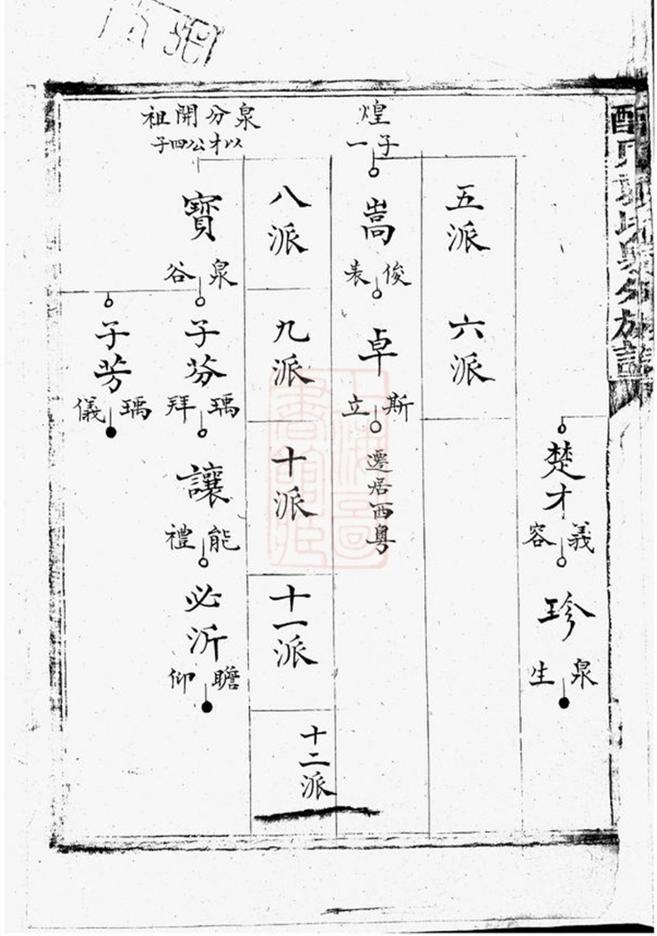 泉分族譜
楚才
義容
珍
泉生
五派
六派
煌子一
嵩
俊
卓
斯立
遷居西粵
八派
九派
十派
十一派
十二派
泉分開祖
以才公四子
寶
泉谷
子芬
瑀拜
讓
能禮
必沂
瞻仰
子芳
瑀儀
上海圖書館藏